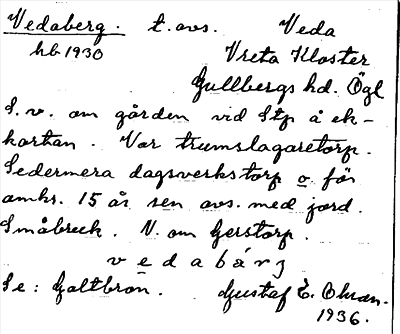 Vedaberg. t. avs. Veda
hb 1930 Vreta Kloster
Gullbergs hd. Ögl
S. v. om gården vid Stp å ek-
kartan. Var trumslagaretorp.
Sedermera dagsverkstorp o. för
omkr. 15 år sen avs. med jord.
Småbruk. N. om Gerstorp.
vedabárj
Se: Galtbron. Gustaf E. Ohman.
1936.